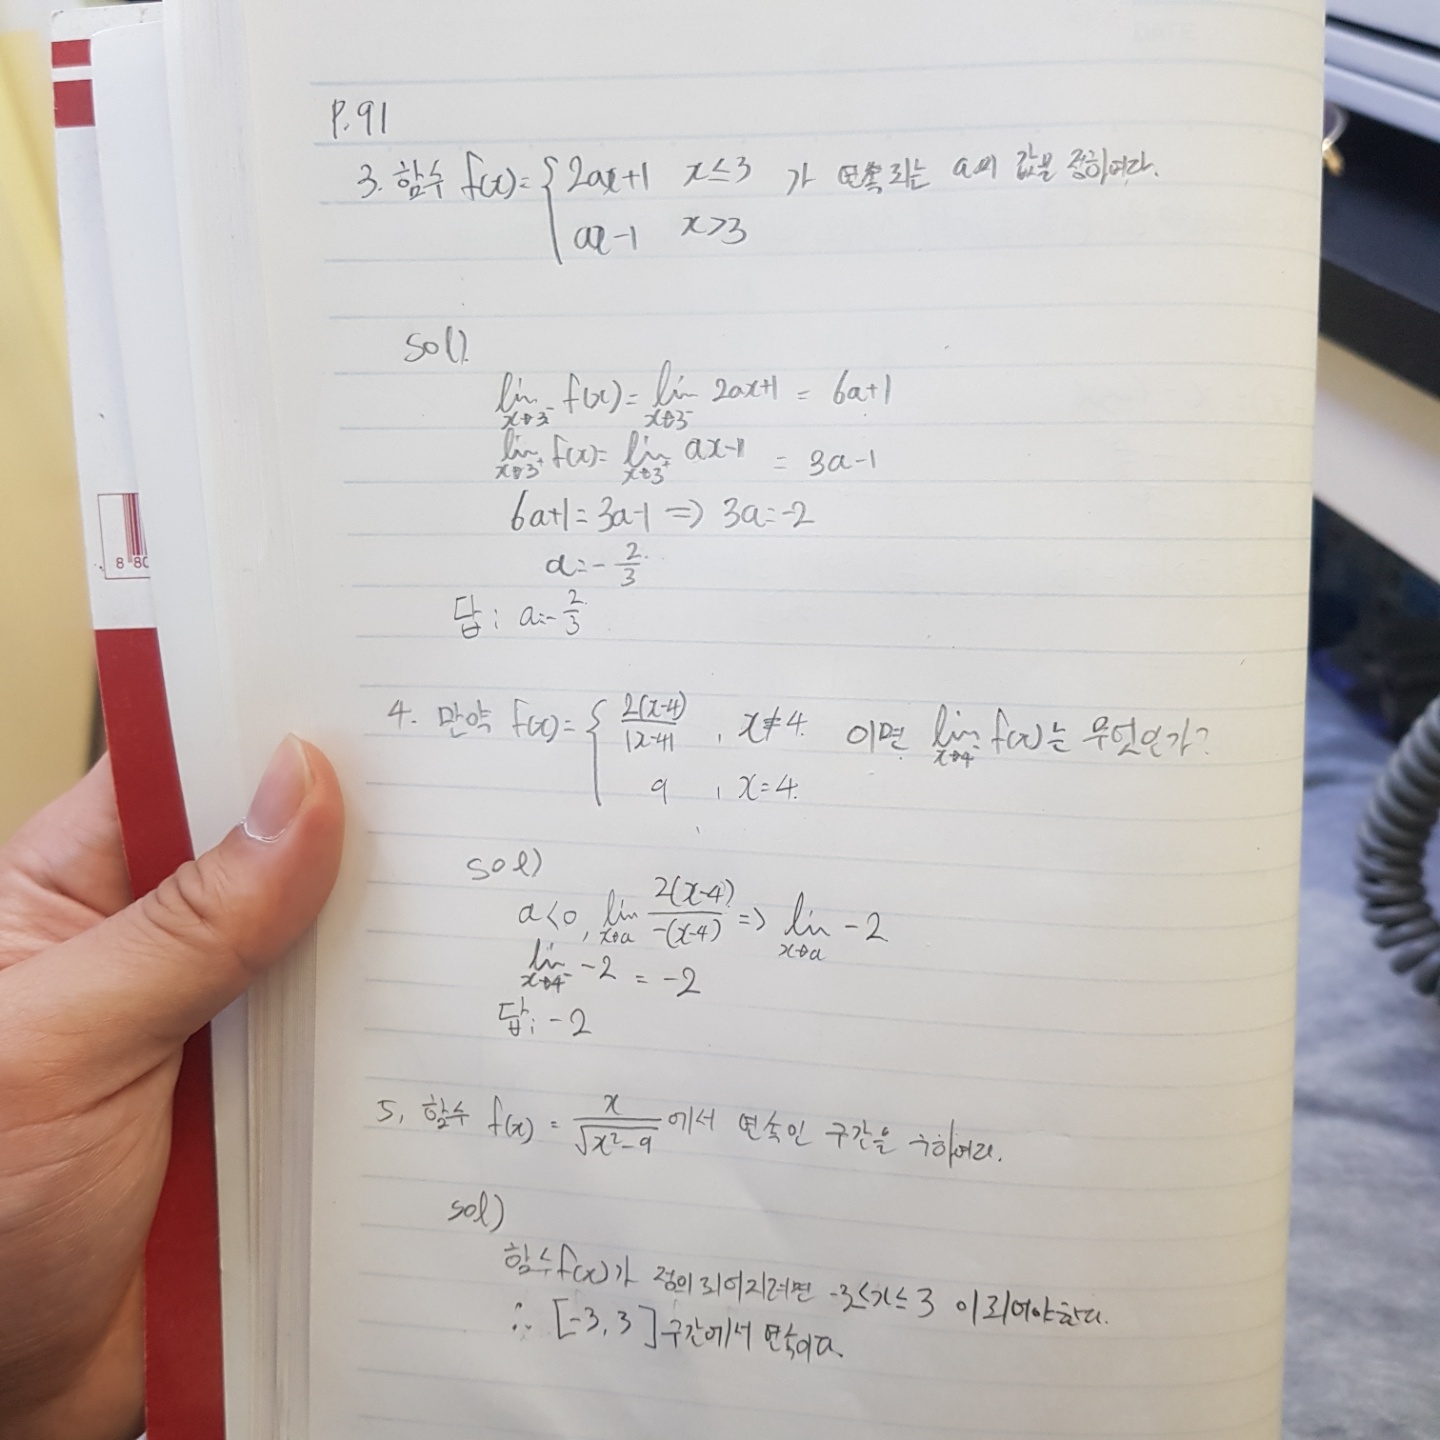 P.91
3. 함수 f(x)= { 2ax+1 x≤3 가 연속되는 a의 값을 정하여라.
ax-1 x>3
sol).
lim x→3⁻ f(x) = lim x→3⁻ 2ax+1 = 6a+1
lim x→3⁺ f(x) = lim x→3⁺ ax-1 = 3a-1
6a+1=3a-1 ⇒ 3a=-2
a=-2/3.
답; a=-2/3.
4. 만약 f(x)= { 2(x-4)/|x-4| , x≠4. 이면 lim x→4⁻ f(x)는 무엇인가?
9 , x=4.
sol)
a<0, lim x→a 2(x-4)/-(x-4) ⇒ lim x→a -2
lim x→4⁻ -2 = -2
답; -2
5. 함수 f(x) = x/√(x²-9) 에서 연속인 구간을 구하여라.
sol)
함수f(x)가 정의되어지려면 -3≤x≤3 이되어야한다.
∴ [-3, 3] 구간에서 연속이다.
8 80